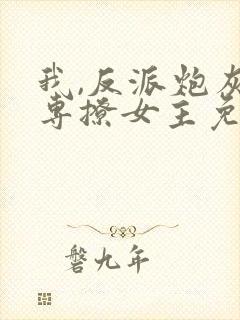 我,反派炮灰
专撩女主免
磐九年